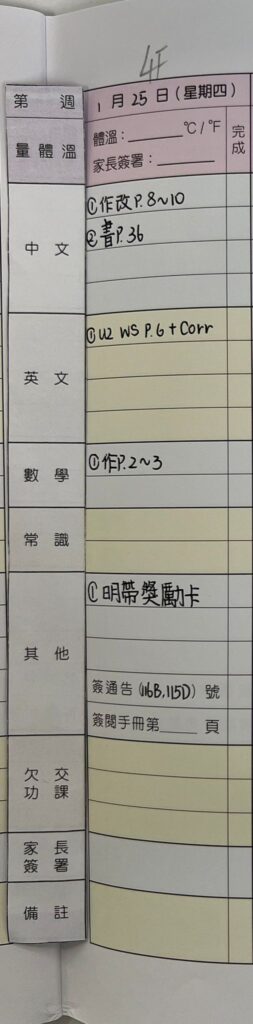 4F
第 週
1月25日(星期四)
量體溫
體溫:______℃/℉
家長簽署:______
完成
中文
①作改P.8~10
②書P.36
英文
①U2 WS P.6+Corr
數學
①作P.2~3
常識
其他
①明帶獎勵卡
簽通告(116B,115D)號
簽閱手冊第____頁
欠交
功課
家長
簽署
備註